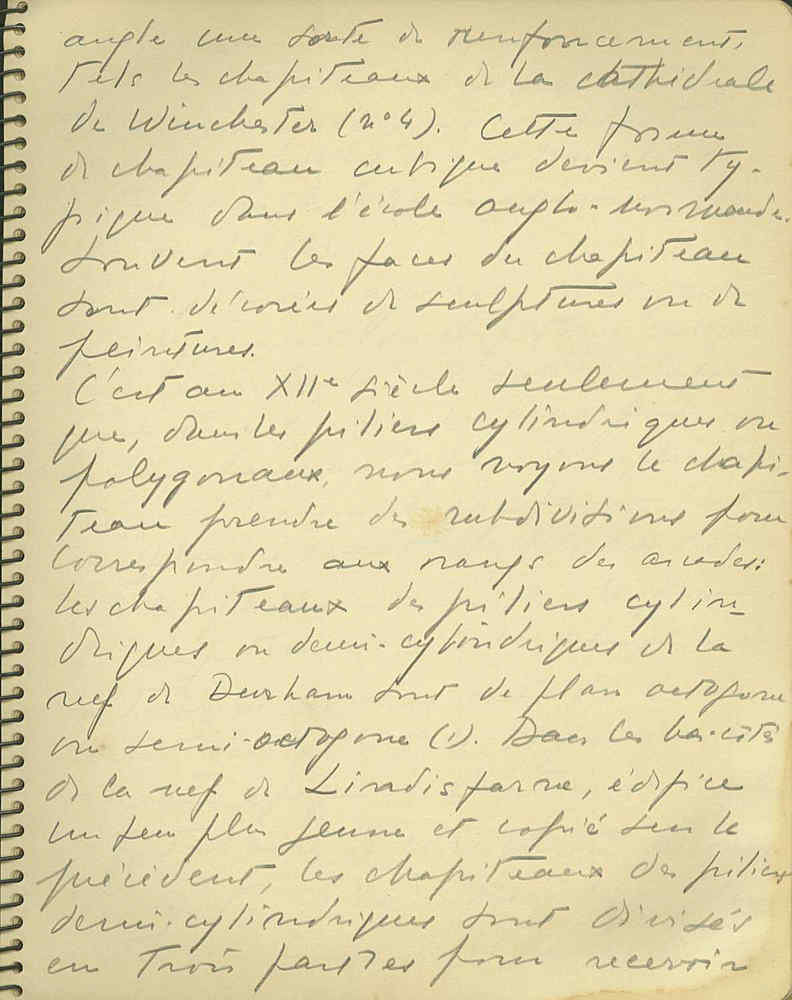 angle une sorte de renfoncement,
Tels les chapiteaux de la cathédrale
de Winchester (n°4). Cette forme
de chapiteau cubique devient ty-
pique dans l'école anglo-normande.
Souvent les faces du chapiteau
sont décorées de sculptures ou de
peintures.
C'est au XIIe siècle seulement
que, dans les piliers cylindriques ou
polygonaux, nous voyons le chapi-
teau prendre des subdivisions pour
correspondre aux rangs des arcades:
les chapiteaux des piliers cylin-
driques ou demi-cylindriques de la
nef de Durham sont de plan octogone
ou semi-octogone (1). Dans les bas-côtés
de la nef de Lindisfarne, édifice
un peu plus jeune et copié sur le
précédent, les chapiteaux des piliers
demi-cylindriques sont divisés
en trois parties pour recevoir